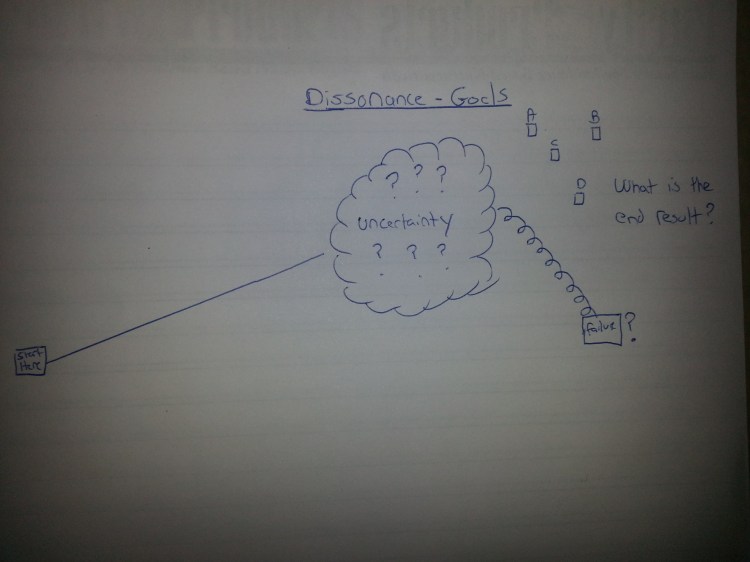 Dissonance - Goals
A
B
C
D
What is the
end result?
? ? ?
uncertainty
? ? ?
Start
Here
Failure
?